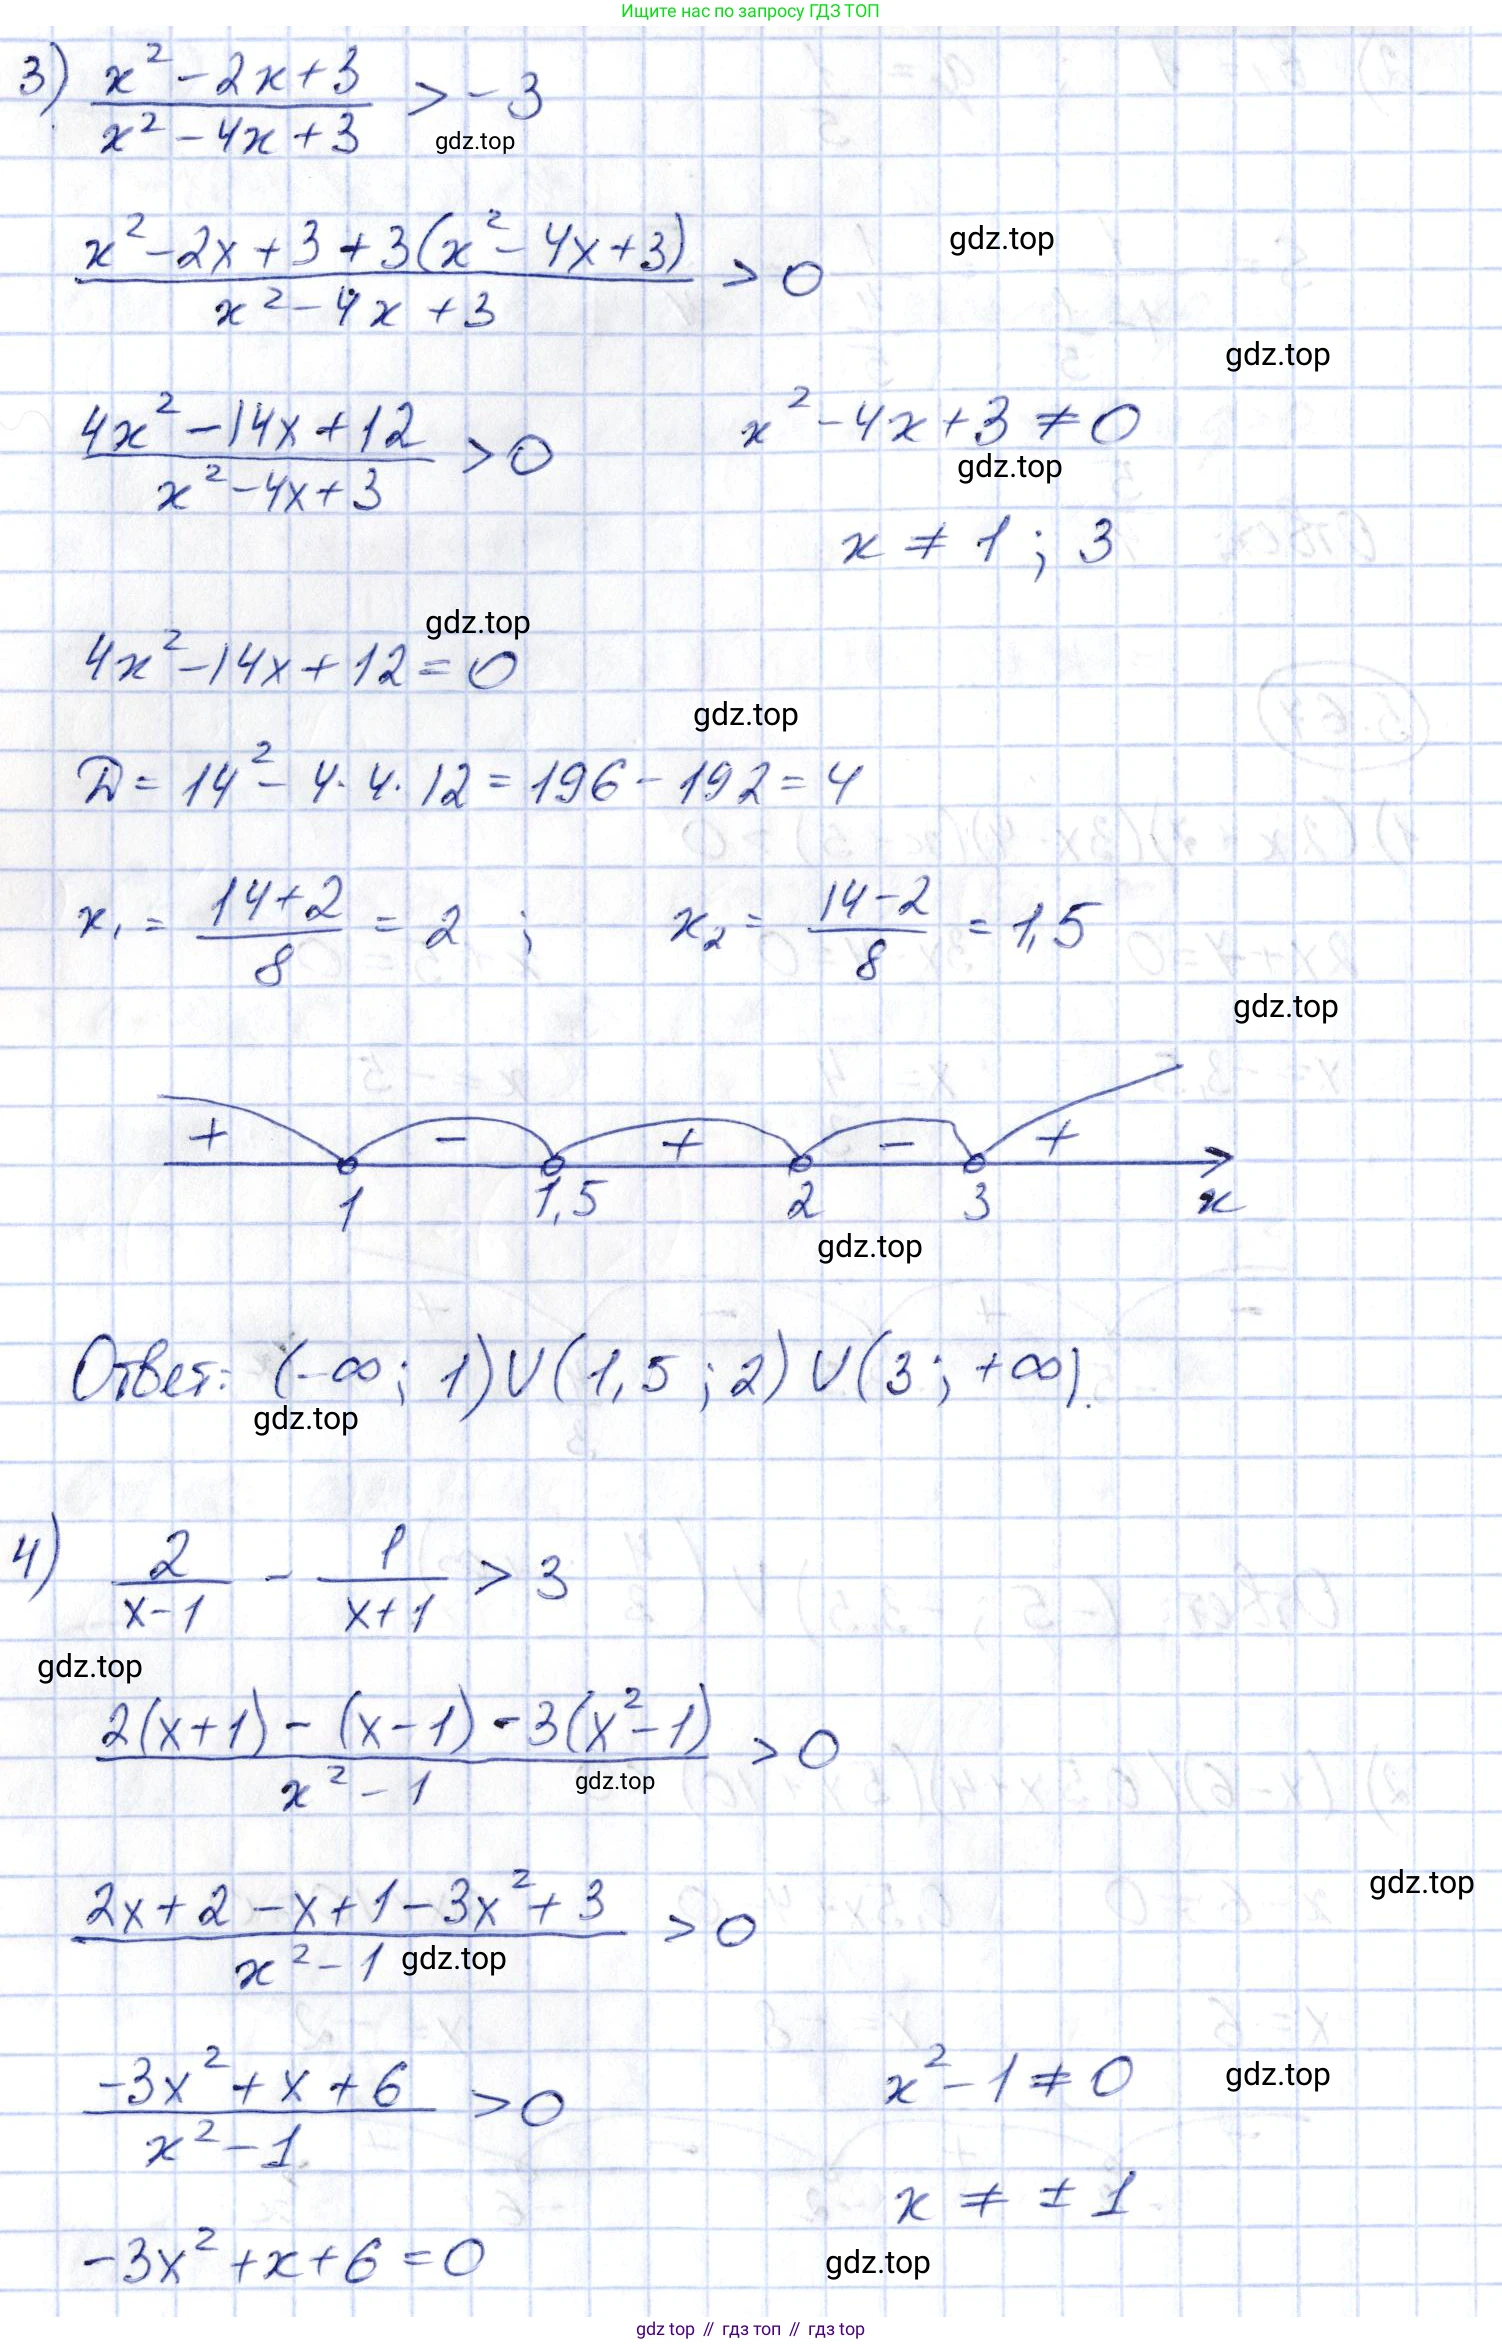 Ищите нас по запросу ГДЗ ТОП
3) (x² - 2x + 3)/(x² - 4x + 3) > -3
gdz.top
(x² - 2x + 3 + 3(x² - 4x + 3))/(x² - 4x + 3) > 0
gdz.top
gdz.top
(4x² - 14x + 12)/(x² - 4x + 3) > 0
x² - 4x + 3 ≠ 0
gdz.top
x ≠ 1 ; 3
gdz.top
4x² - 14x + 12 = 0
gdz.top
D = 14² - 4·4·12 = 196 - 192 = 4
x₁ = (14+2)/8 = 2 ; x₂ = (14-2)/8 = 1,5
gdz.top
+ - + - +
1 1,5 2 3 x
gdz.top
Ответ: (-∞; 1) ∪ (1,5 ; 2) ∪ (3 ; +∞).
gdz.top
4) 2/(x-1) - 1/(x+1) > 3
gdz.top
(2(x+1) - (x-1) - 3(x²-1))/(x² - 1) > 0
gdz.top
gdz.top
(2x + 2 - x + 1 - 3x² + 3)/(x² - 1) > 0
gdz.top
(-3x² + x + 6)/(x² - 1) > 0
x² - 1 ≠ 0
gdz.top
x ≠ ± 1
-3x² + x + 6 = 0
gdz.top
gdz top // гдз топ // гдз top